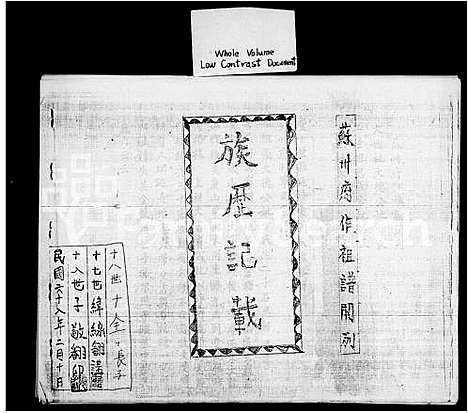 Whole Volume
Low Contrast Document
蘇州府作祖譜開列
族歷記載
十八世十全十長子
十七世緯線翻謄
十八世子敬翻印
民國六十八年二月十日
FamilySearch